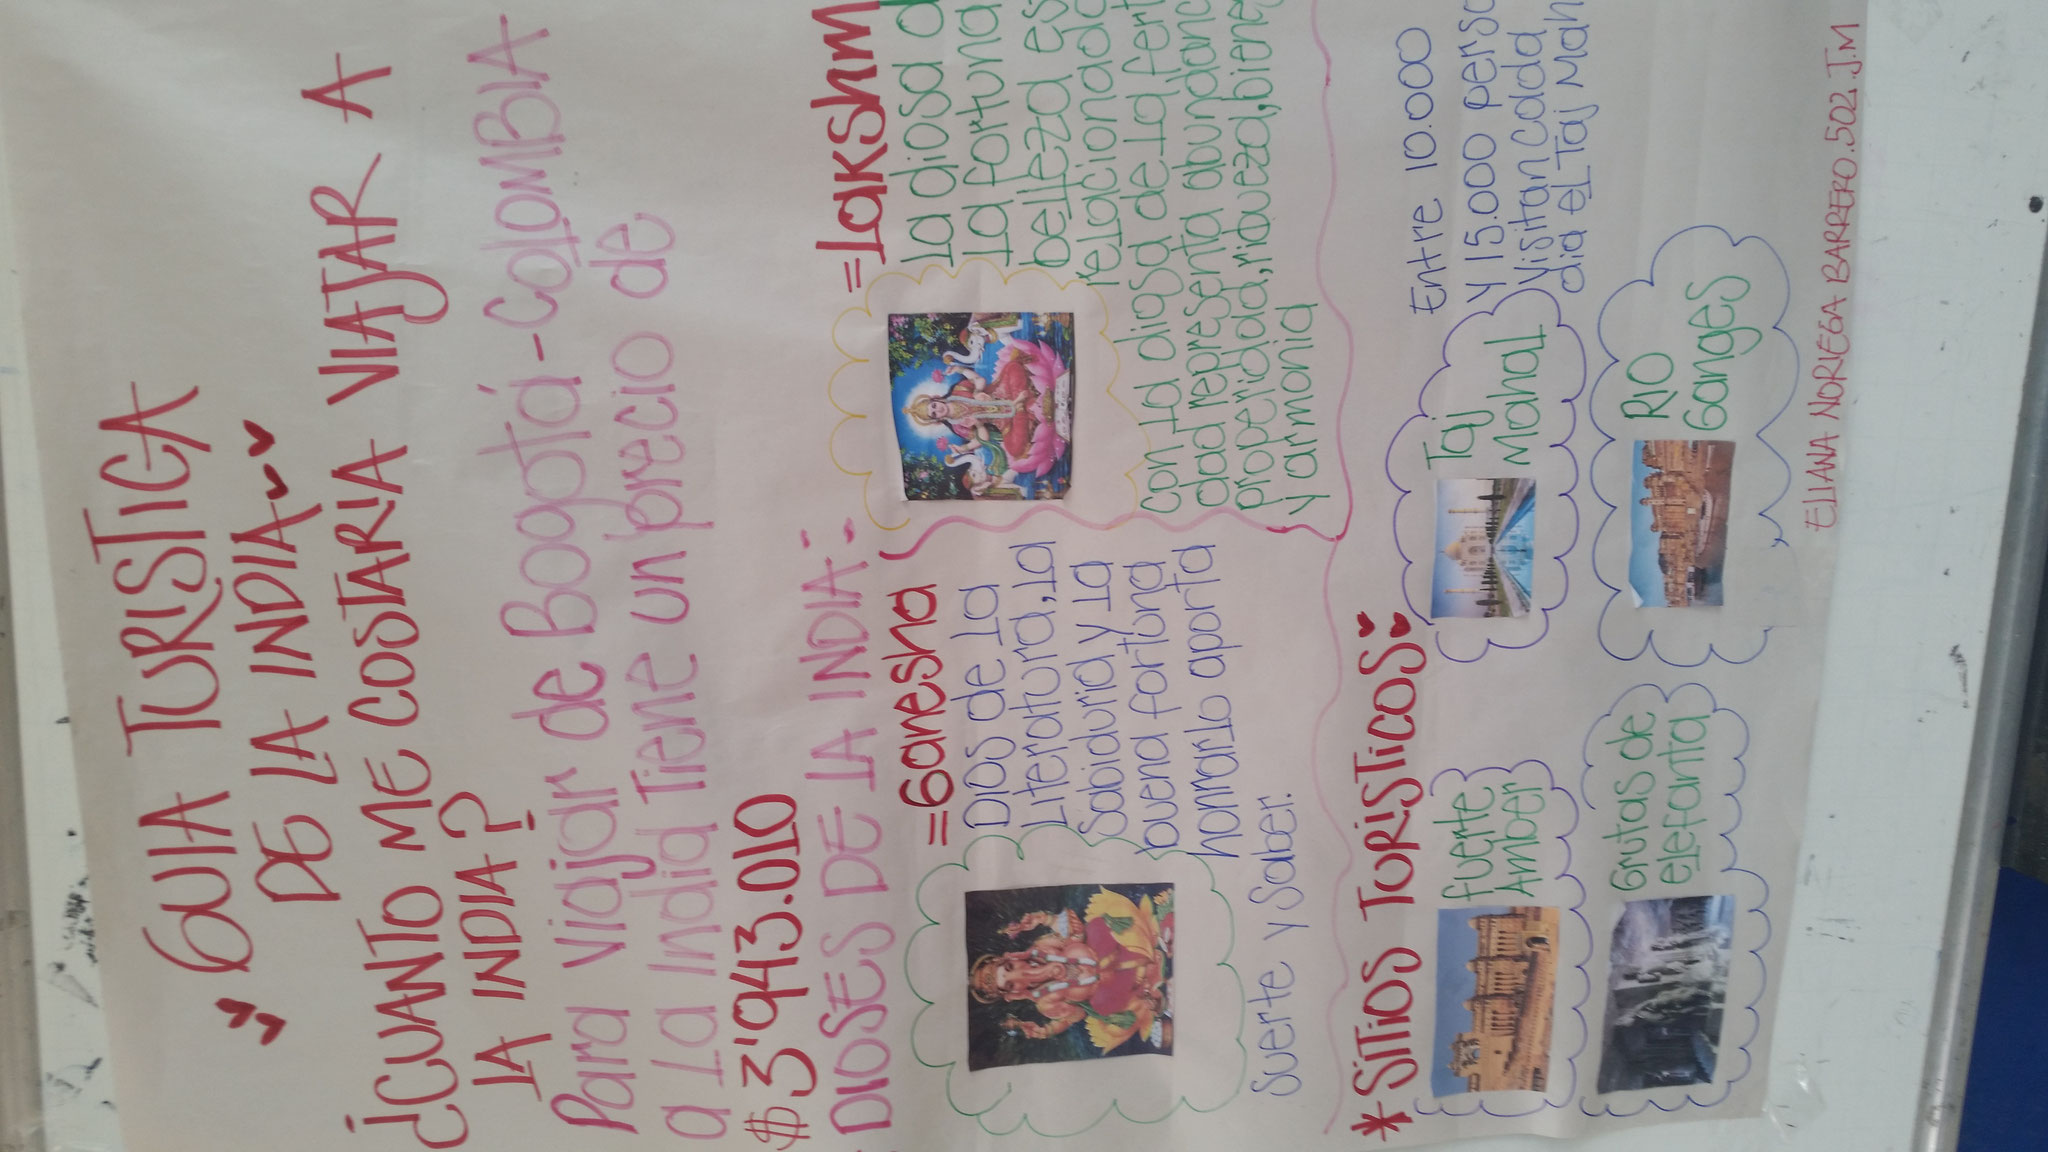 GUIA TURISTICA
DE LA INDIA
¿CUANTO ME COSTARIA VIAJAR A
LA INDIA?
Para viajar de Bogotá-COLOMBIA
a La India Tiene un precio de
$3'943.010
DIOSES DE LA INDIA:
=Ganesha
DIOS de La
Literatura, La
Sabiduria y La
buena fortuna
honrarlo aporta
Suerte y Saber.
=Lakshm
La diosa d
La fortuna
belleza es
relacionada
con La diosa de La fert
dad representa abundanc
properidda, riqueza, biene
y armonia
*SITIOS TURISTICOS
Fuerte
Amber
Taj
Mahal
Entre 10.000
y 15.000 perso
Visitan cada
dia el Taj Mah
Grutas de
elefanta
RIO
Ganges
ELIANA NORIEGA BARRERO.502.J.M